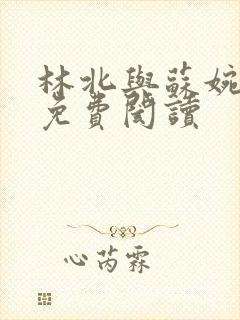 林北與蘇婉
免費閱讀
心芮霖